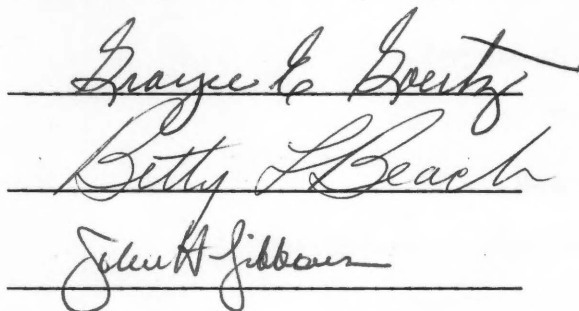 Grayce E Goertz
Betty L Beach
John H Gibbons